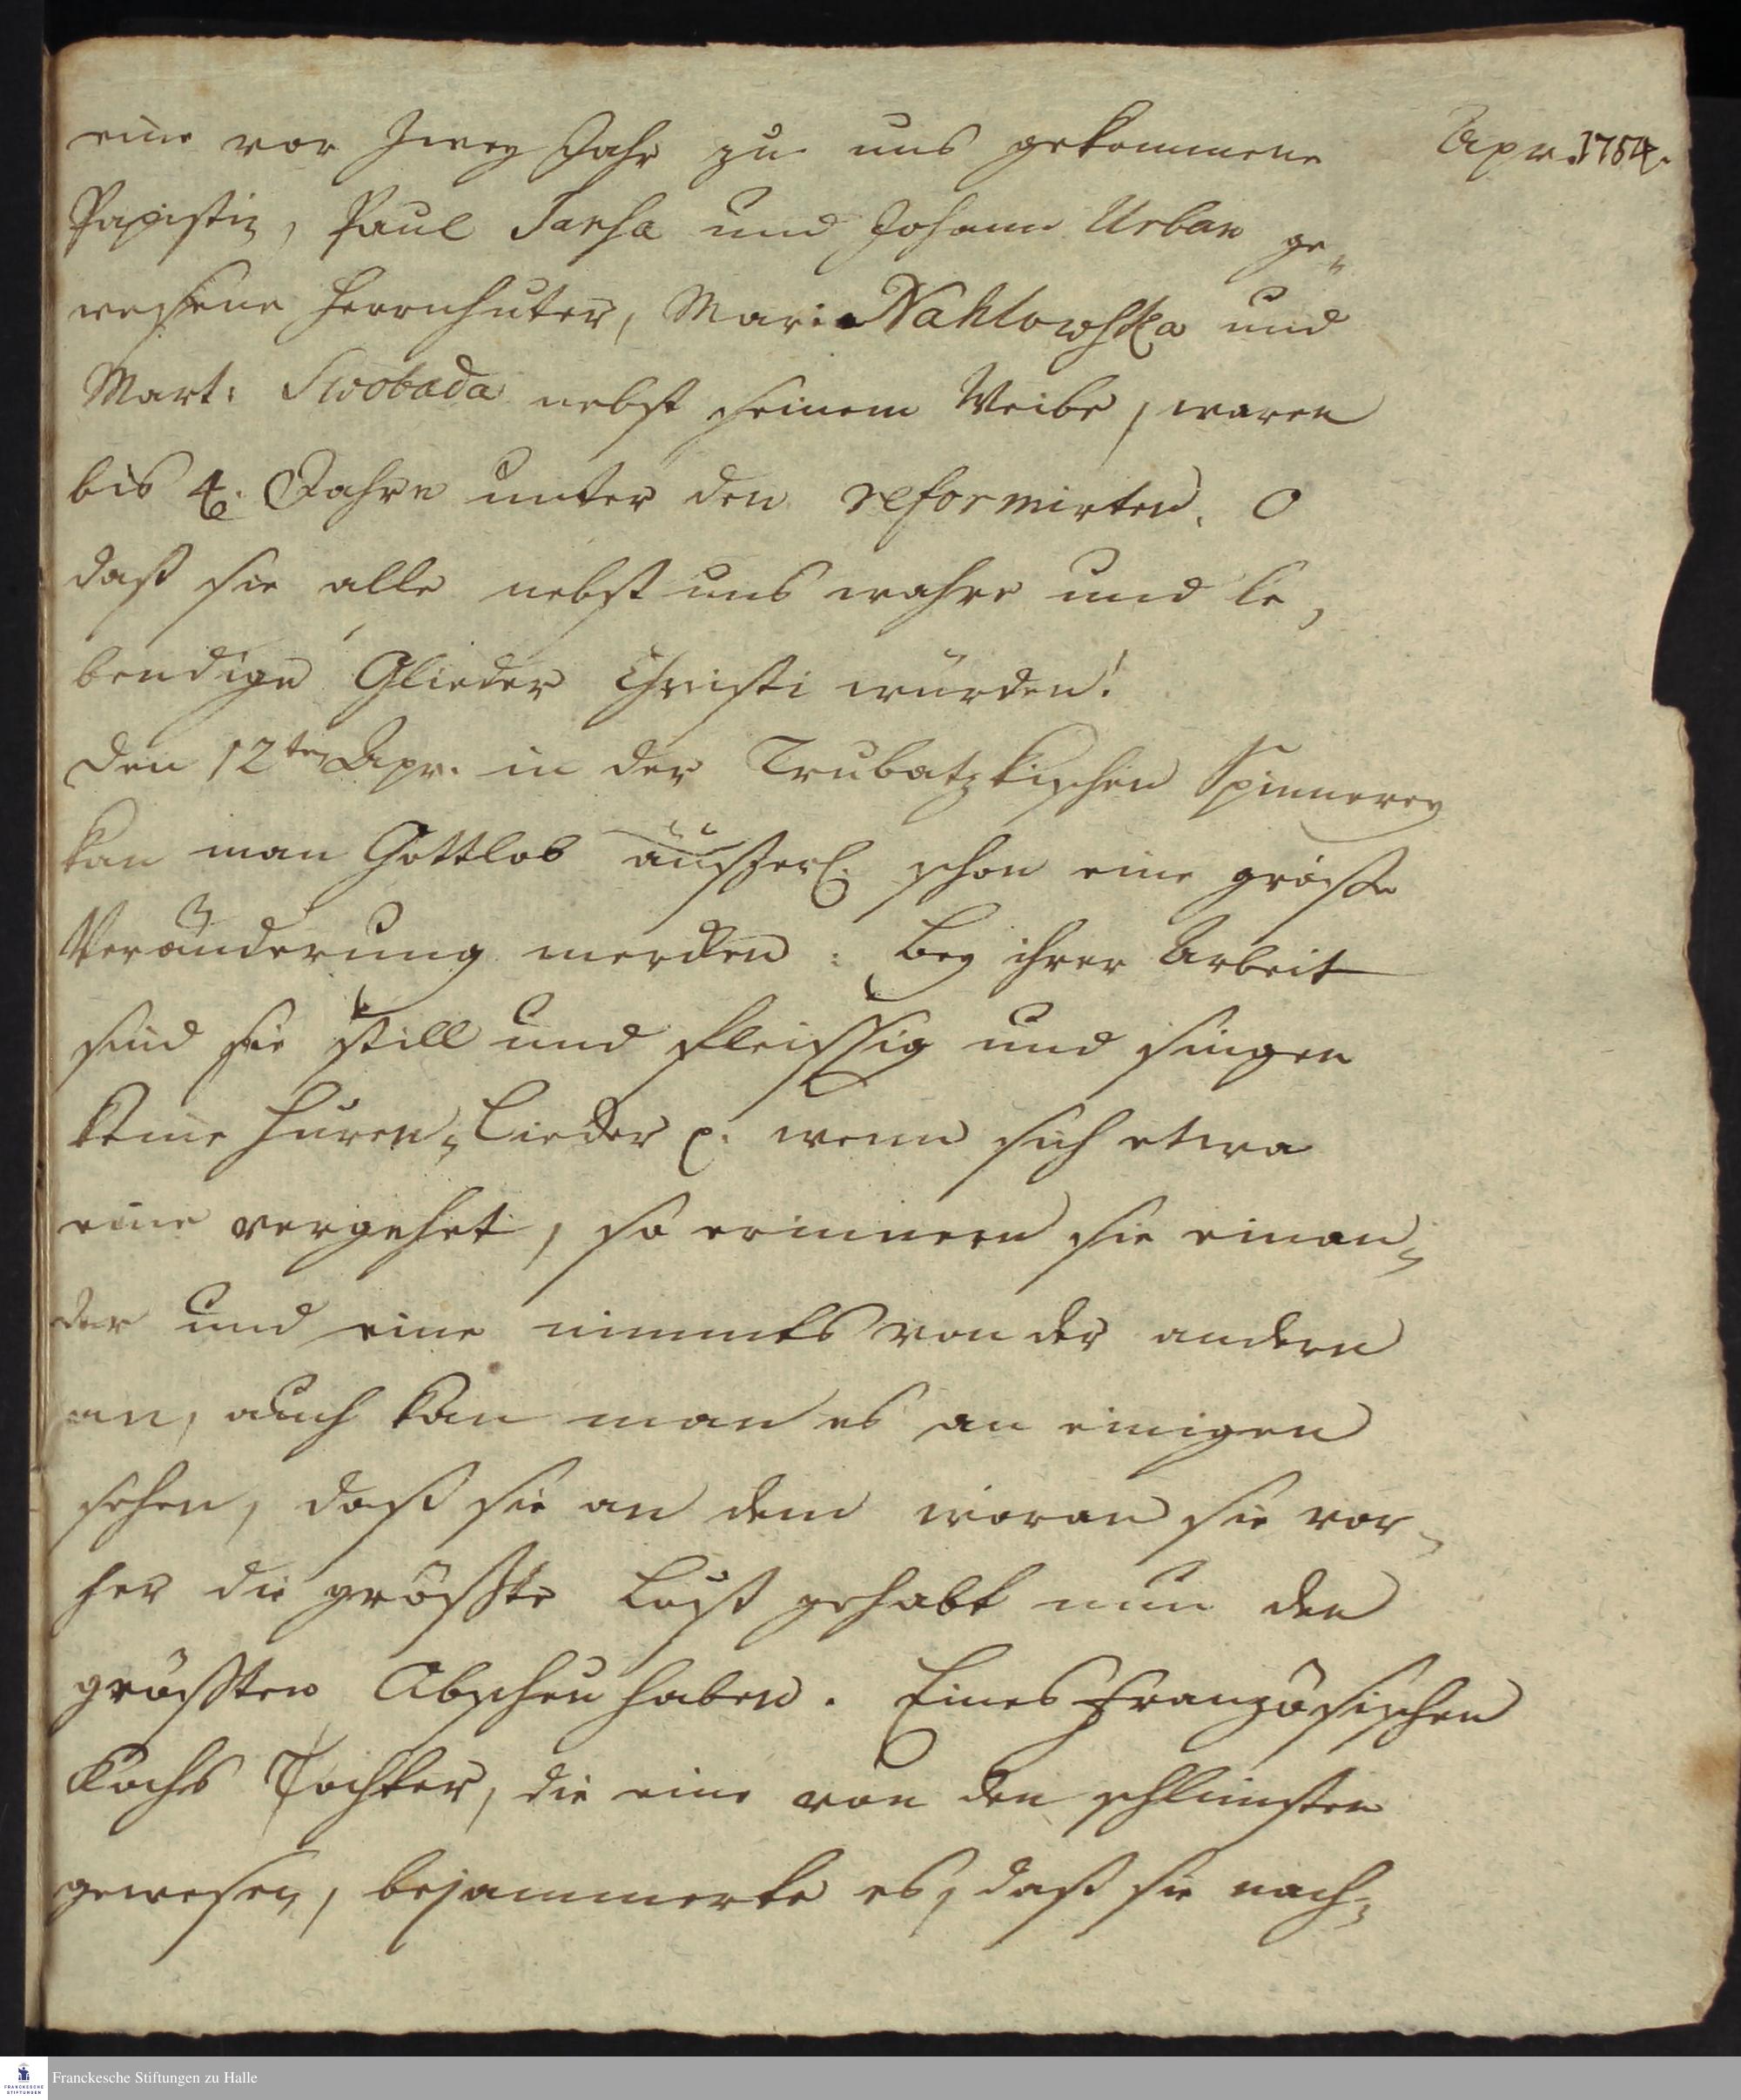 eine vor Zwey Jahr zu uns gekommene
Apr. 1754.
Papistin, Paul Jansa und Johann Urban ge„
wesene Herrnhuter, Maria Nahlowska und
Mart: Swobada nebst seinem Weibe, waren
bis 4. Jahre unter den reformirten. O
daß sie alle nebst uns wahre und le„
bendige Glieder Christi würden!
Den 12ten Apr. in der Trubatzkischen Spinnerey
kan man Gottlob äußerl. schon eine grosse
Veränderung mercken: Bey ihrer Arbeit
sind sie still und fleissig und singen
keine Huren„Lieder p. wenn sich etwa
eine vergehet, so erinnern sie einan„
der und eine nimmts von der andern
an, auch kan man es an einigen
sehen, daß sie an dem woran sie vor„
her die gröste Lust gehabt nun den
grösten Abscheu haben. Eines französischen
Kochs Tochter, die eine von den schlimsten
gewesen, bejammerte es, daß sie nach„
Franckesche Stiftungen zu Halle
FRANCKESCHE
STIFTUNGEN